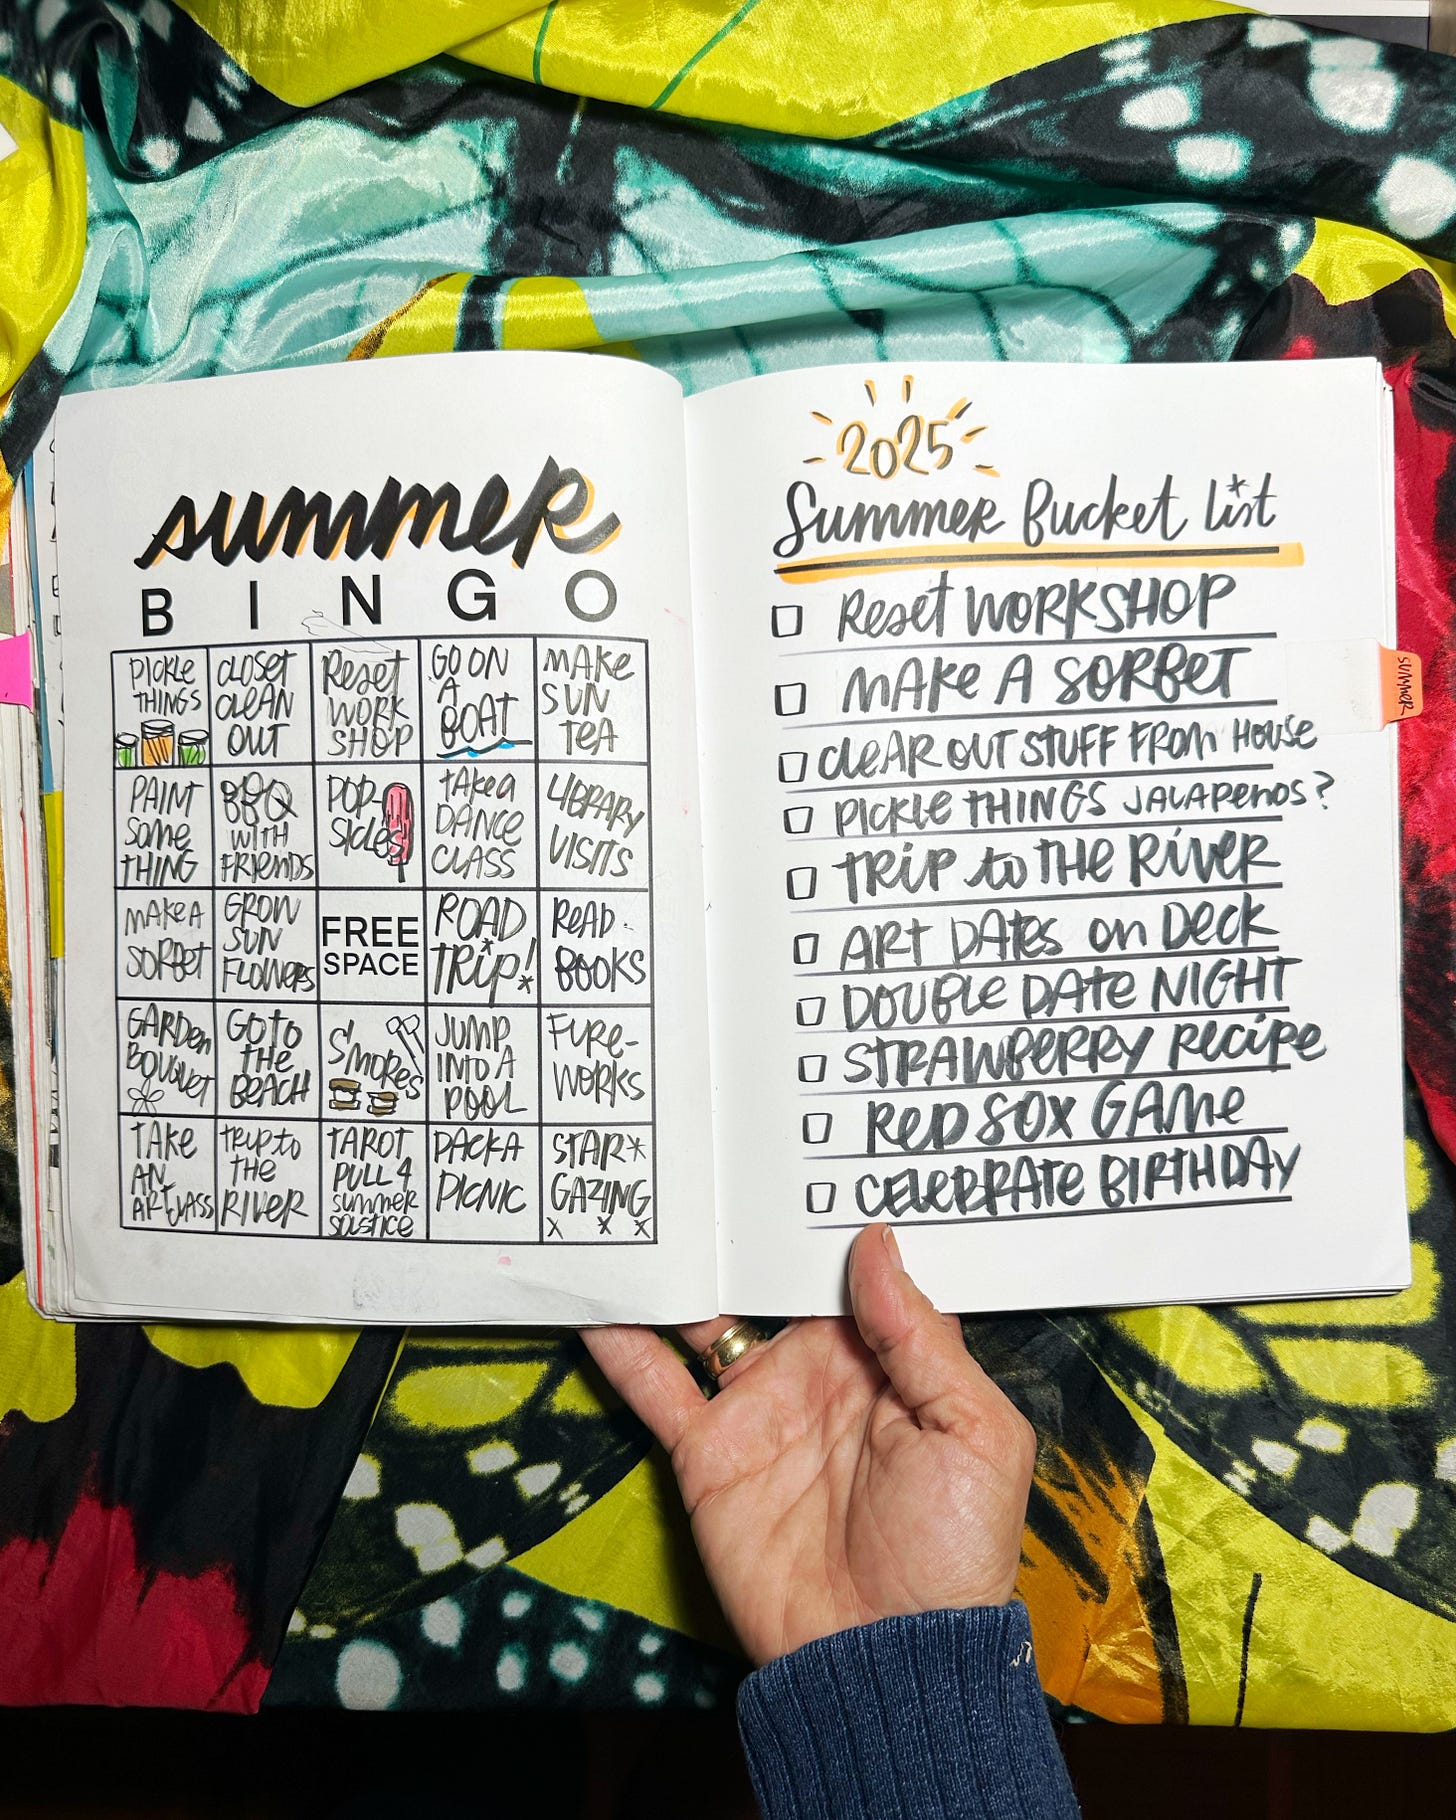 summer
B I N G O
PICKLE
THINGS
CLOSET
CLEAN
OUT
Reset
WORK
SHOP
GO ON
A
BOAT
MAKE
SUN
TEA
PAINT
SOME
THING
BBQ
WITH
FRIENDS
POP-
SICLES
TAKE A
DANCE
CLASS
LIBRARY
VISITS
MAKE A
SORBET
GROW
SUN
FLOWERS
FREE
SPACE
ROAD
TRIP!
READ
BOOKS
GARDEN
BOUQUET
GO TO
THE
BEACH
S'MORES
JUMP
INTO A
POOL
FIRE-
WORKS
TAKE
AN
ART CLASS
TRIP TO
THE
RIVER
TAROT
PULL 4
SUMMER
SOLSTICE
PACK A
PICNIC
STAR*
GAZING
x x x
2025
Summer Bucket List
Reset WORKSHOP
MAKE A SORBET
CLEAR OUT STUFF FROM HOUSE
PICKLE THINGS JALAPENOS?
TRIP to THE RIVER
ART DATES on Deck
DOUBLE DATE NIGHT
STRAWBERRY RECIPE
RED SOX GAME
CELEBRATE BIRTHDAY
SUMMER